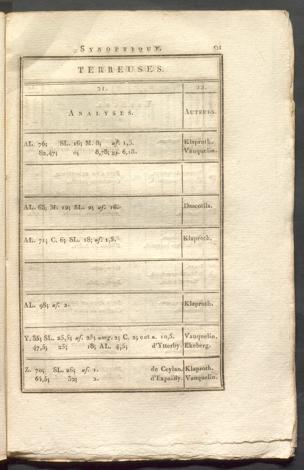 SYNOPTIQUE. 91
TERREUSES.
21. 22.
ANALYSES. AUTEURS.
AL. 76; SL. 16; M. 8; af. 1,5. Klaproth.
82,47; 0; 8,78; 6,18. Vauquelin.
AL. 68; M. 12; SL. 2; af. 16. Descotils.
AL. 71; C. 6; SL. 18; af. 1,5. Klaproth.
AL. 98; af. 2. Klaproth.
Y. 35; SL. 25,5; af. 25; mng. 2; C. 2; eat a. 10,5. Vauquelin.
47,5; 25; 18; AL. 4,5; d'Ytterby. Ekeberg.
Z. 70; SL. 26; af. 1. de Ceylan. Klaproth.
64,5; 32; 2. d'Expailly. Vauquelin.